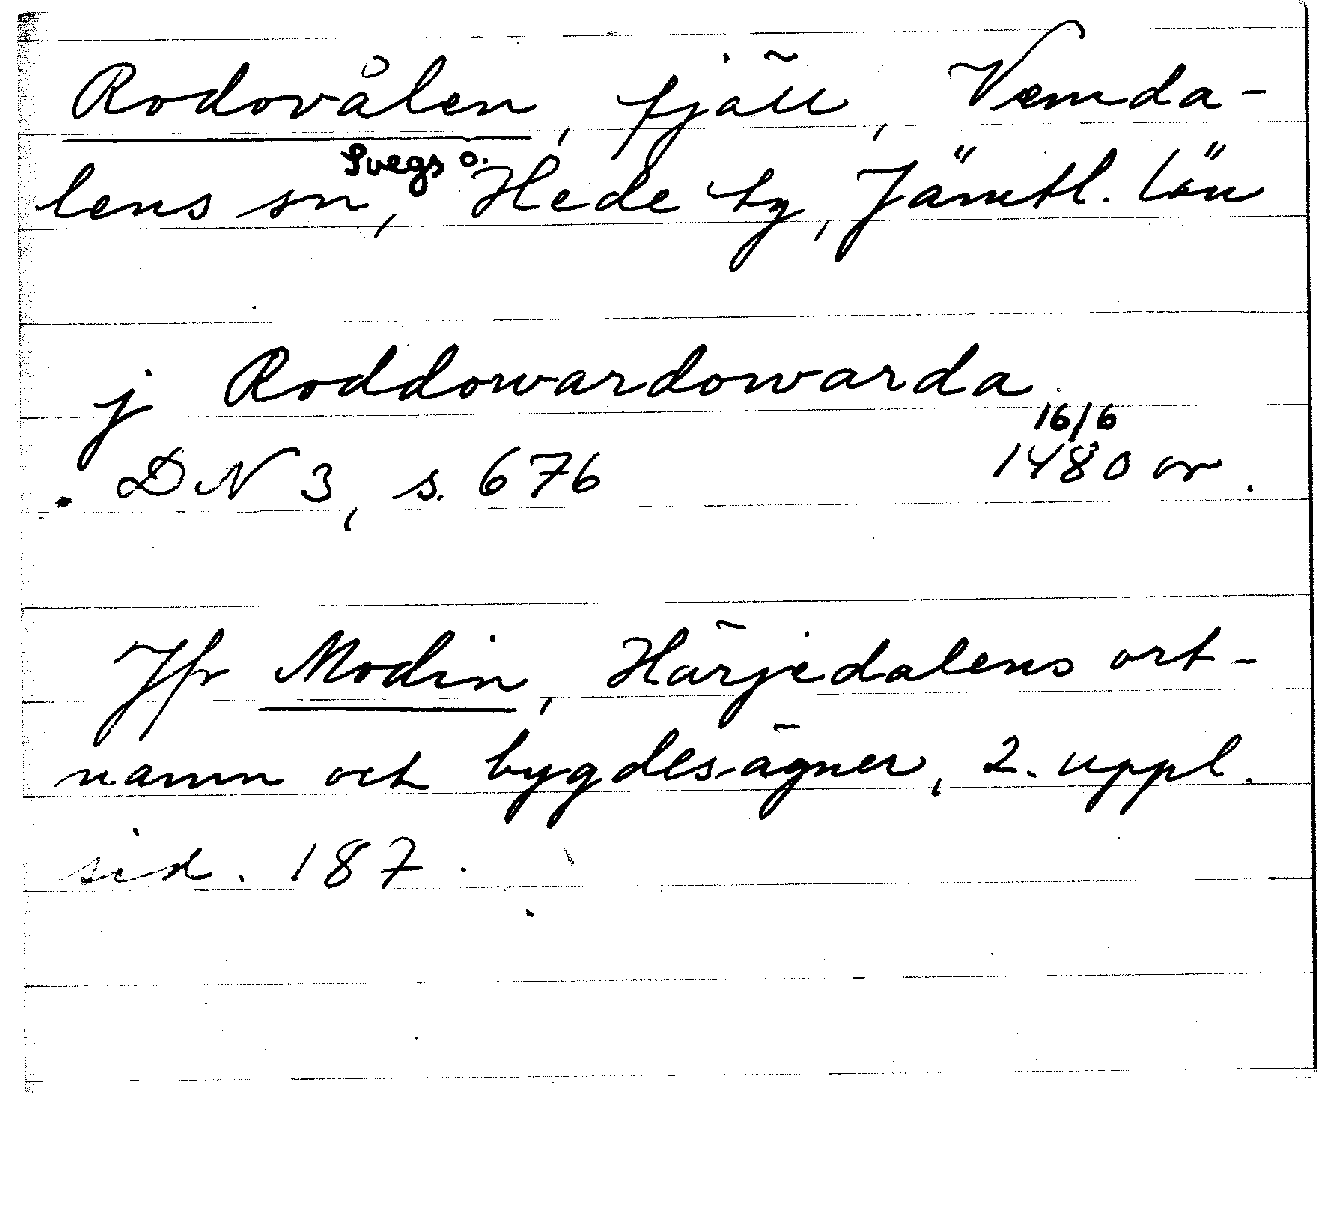 Rodovålen, fjäll, Vemda-
lens sn, Svegs o. Hede tg, Jämtl. län
j Roddowardowarda
16/6
DN 3, s. 676 1480 or.
Jfr Modin, Härjedalens ort-
namn och bygdesägner, 2. uppl.
sid. 187.